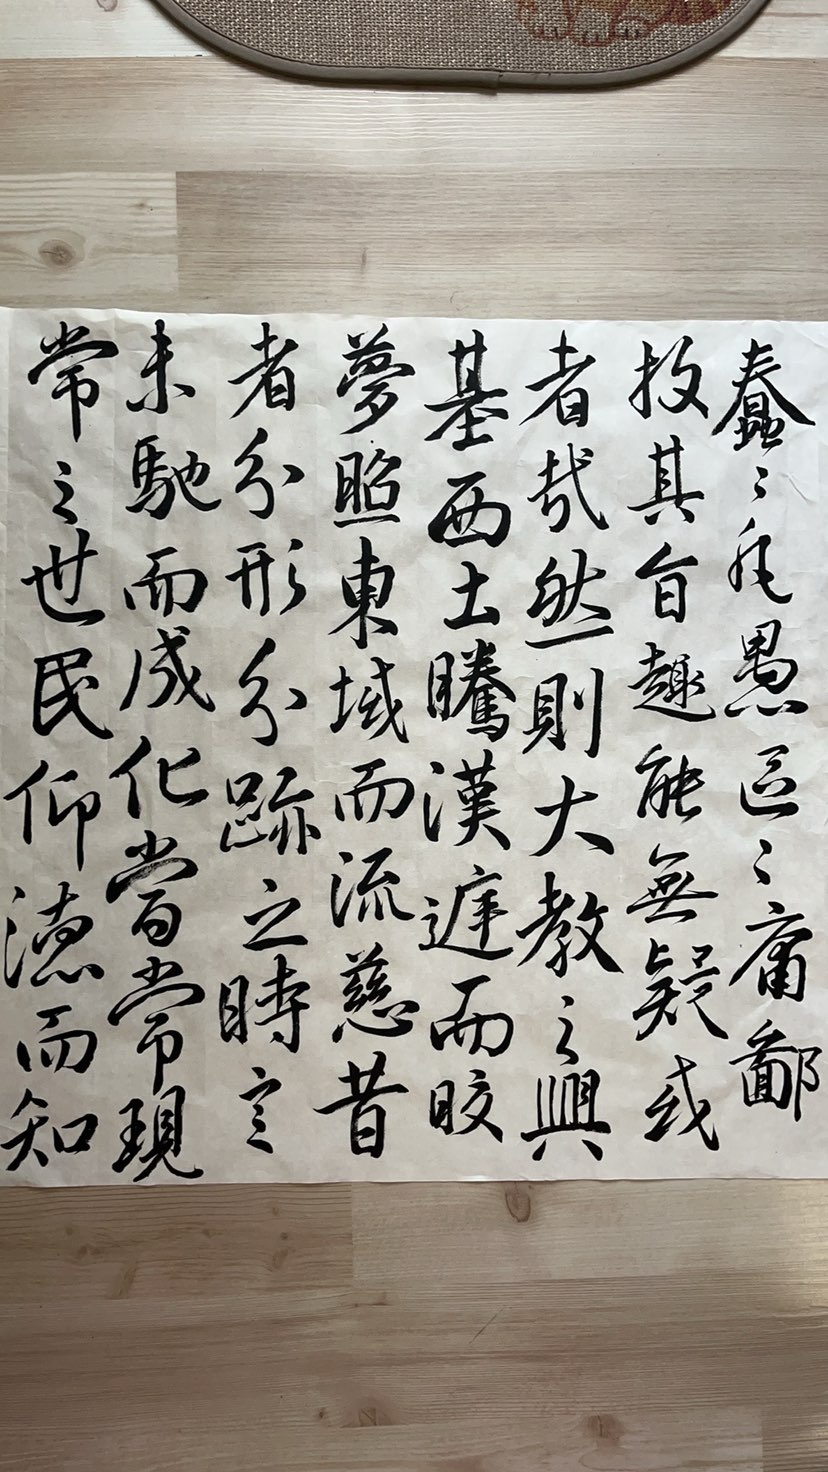 蠢〻凡愚區〻庸鄙
投其旨趣能無疑或
者哉然則大教之興
基西土騰漢遲而皎
夢照東域而流慈昔
者分形分跡之時言
未馳而成化當常現
常之世民仰德而知